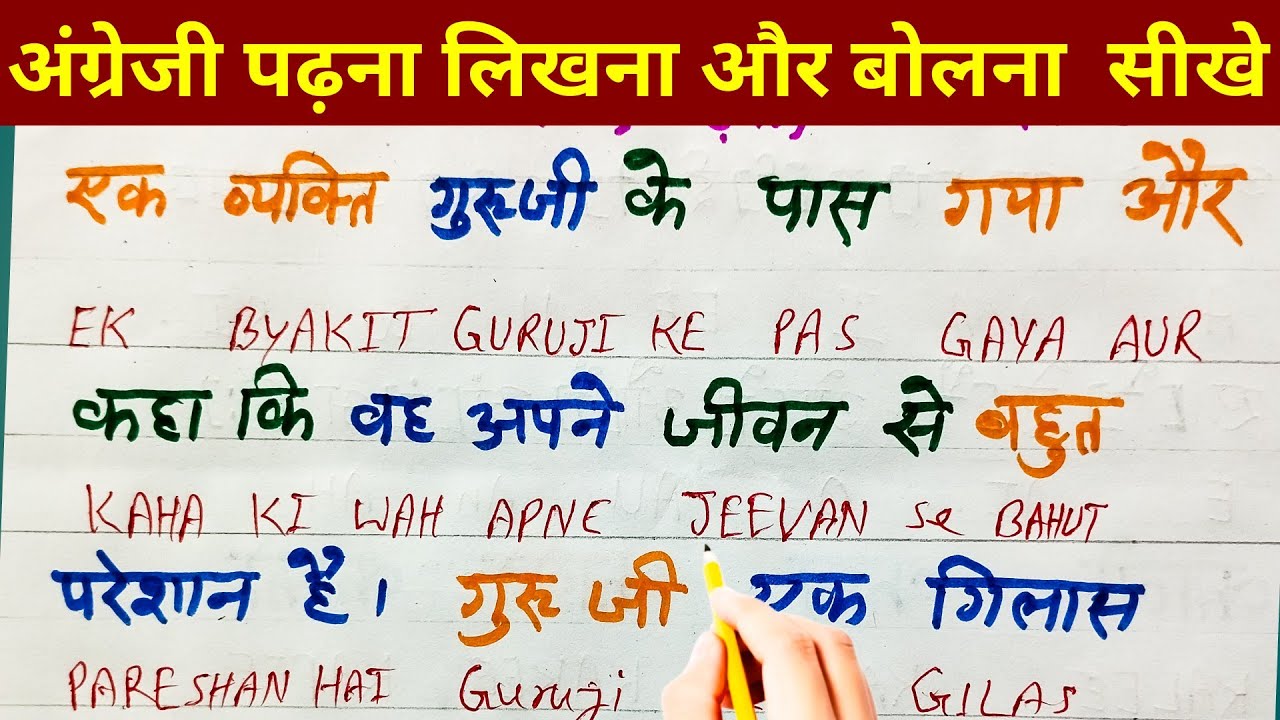 अंग्रेजी पढ़ना लिखना और बोलना सीखे
एक व्यक्ति गुरुजी के पास गया और
EK BYAKIT GURUJI KE PAS GAYA AUR
कहा कि वह अपने जीवन से बहुत
KAHA KI WAH APNE JEEVAN Se BAHUT
परेशान है। गुरु जी एक गिलास
PARESHAN HAI Guruji GILAS